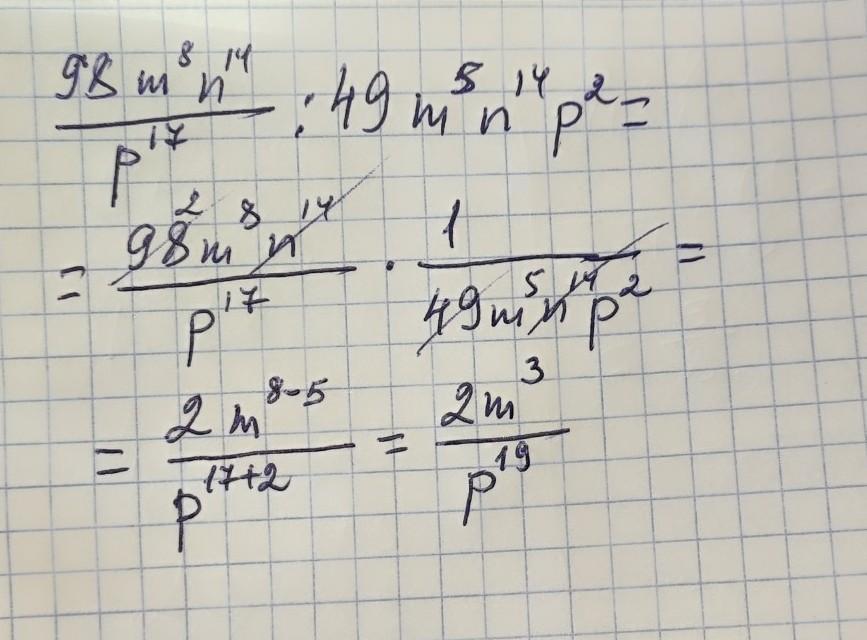 98 m⁸ n¹⁴ / p¹⁷ : 49 m⁵ n¹⁴ p² =
= 98² m⁸ n¹⁴ / p¹⁷ · 1 / 49 m⁵ n¹⁴ p² =
= 2 m⁸⁻⁵ / p¹⁷⁺² = 2m³ / p¹⁹